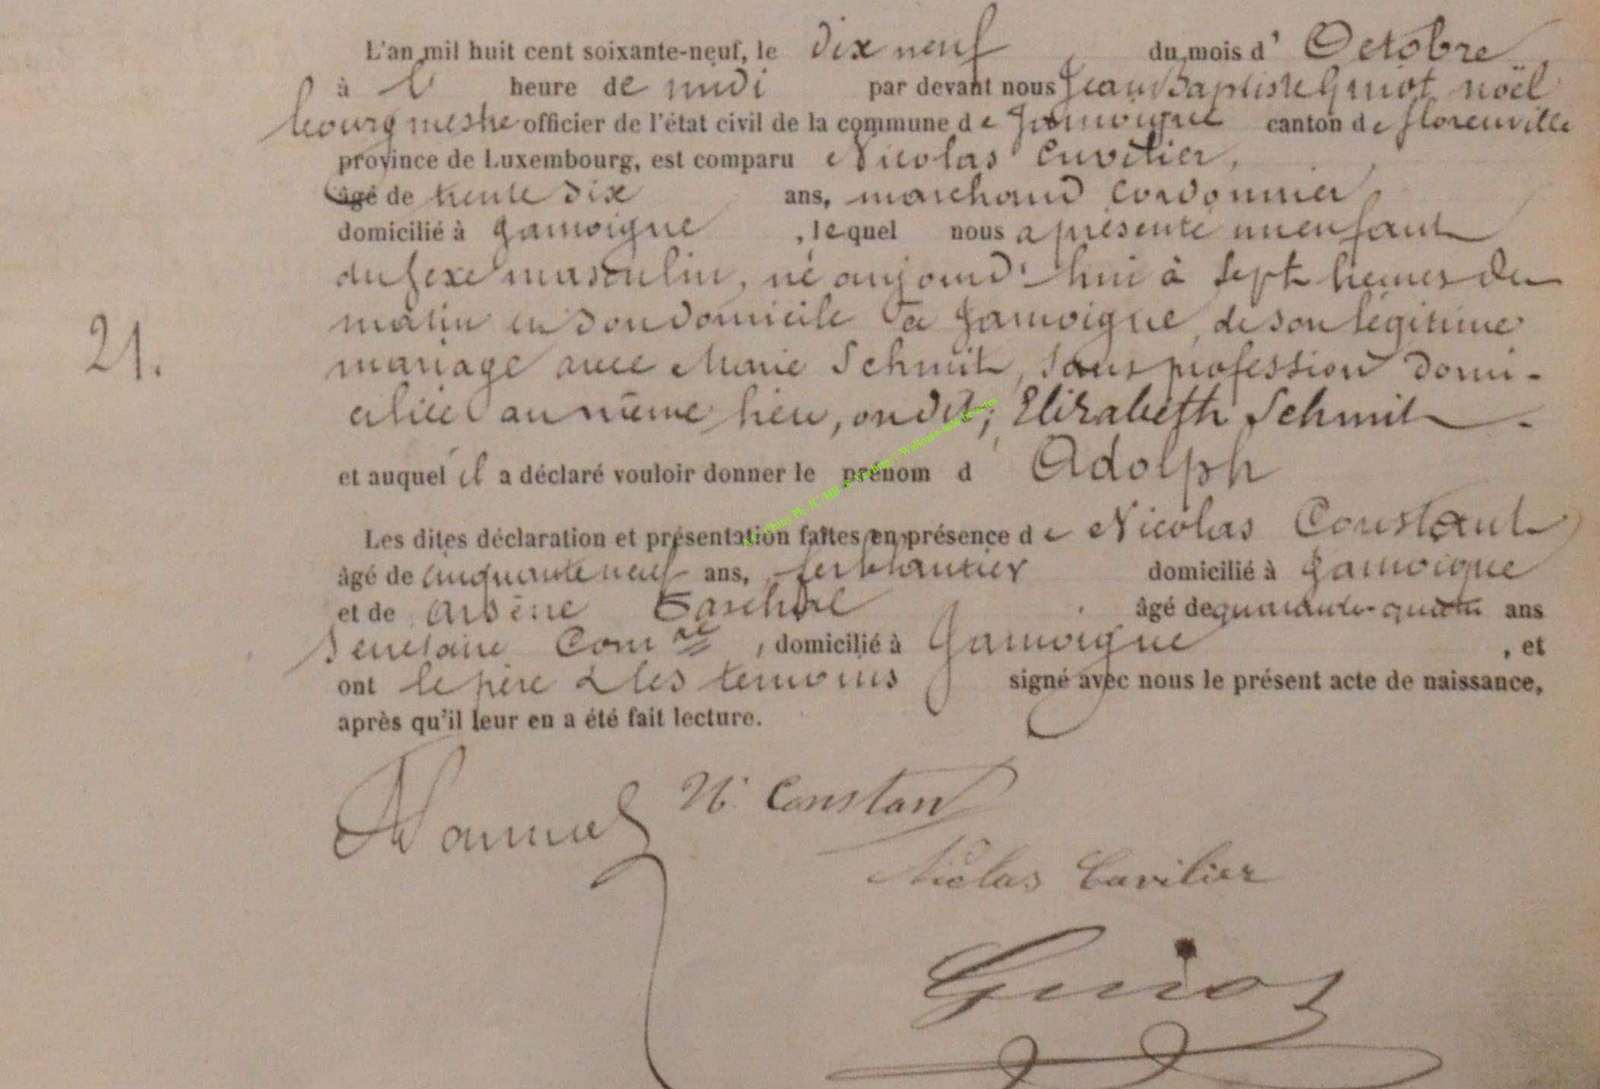 L'an mil huit cent soixante-neuf, le dix neuf du mois d' Octobre
à l' heure de midi par devant nous Jean Baptiste Guiot noël
bourgmestre officier de l'état civil de la commune de Jamoigne canton de florenville
province de Luxembourg, est comparu Nicolas Cuvilier,
âgé de trente six ans, marchand cordonnier
domicilié à Jamoigne, lequel nous a présenté un enfant
du sexe masculin, né aujourd'hui à sept heures du
matin en son domicile à Jamoigne, de son légitime
21.
mariage avec Marie Schmit, sans profession domi-
ciliée au même lieu, on dit; Elizabeth Schmit.
et auquel il a déclaré vouloir donner le prénom d Adolph
Les dites déclaration et présentation faites en présence de Nicolas Constant
âgé de cinquante neuf ans, ferblantier domicilié à Jamoigne
et de Arsène âgé de quarante ans
Secretaire Comal, domicilié à Jamoigne, et
ont le père & les temoins signé avec nous le présent acte de naissance,
après qu'il leur en a été fait lecture.
N. Constant
Nicolas Cuvilier
Guiot